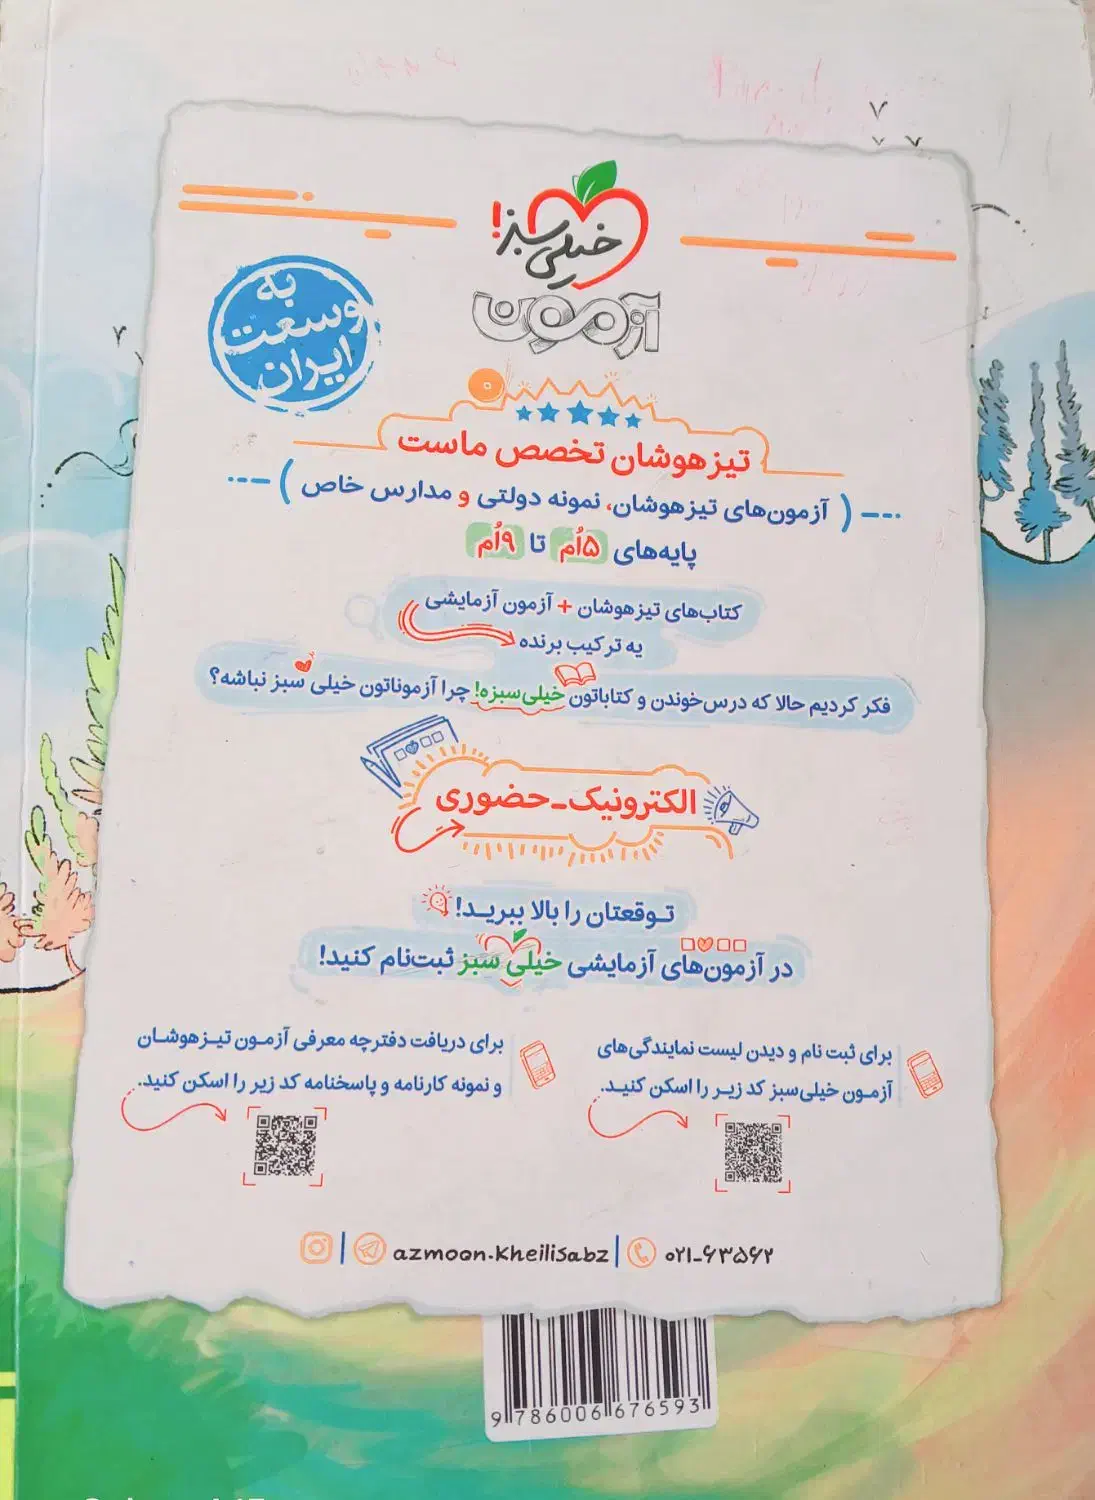 خیلی سبز!
آزمون
به
وسعت
ایران
تیزهوشان تخصص ماست
( آزمون‌های تیزهوشان، نمونه دولتی و مدارس خاص )
پایه‌های ۵اُم تا ۹اُم
کتاب‌های تیزهوشان + آزمون آزمایشی
یه ترکیب برنده
فکر کردیم حالا که درس‌خوندن و کتاباتون خیلی‌سبزه! چرا آزموناتون خیلی سبز نباشه؟
الکترونیک-حضوری
تـوقعتان را بالا ببریـد!
در آزمون‌های آزمایشی خیلی سبز ثبت‌نام کنید!
برای ثبت نام و دیدن لیست نمایندگی‌های
آزمـون خیلی‌سبز کد زیـر را اسکن کنیـد.
برای دریافت دفترچه معرفی آزمـون تیـزهوشـان
و نمونه کارنامه و پاسخنامه کد زیر را اسکن کنید.
azmoon.kheilisabz | ۰۲۱-۶۳۵۶۲
9 786006 676593